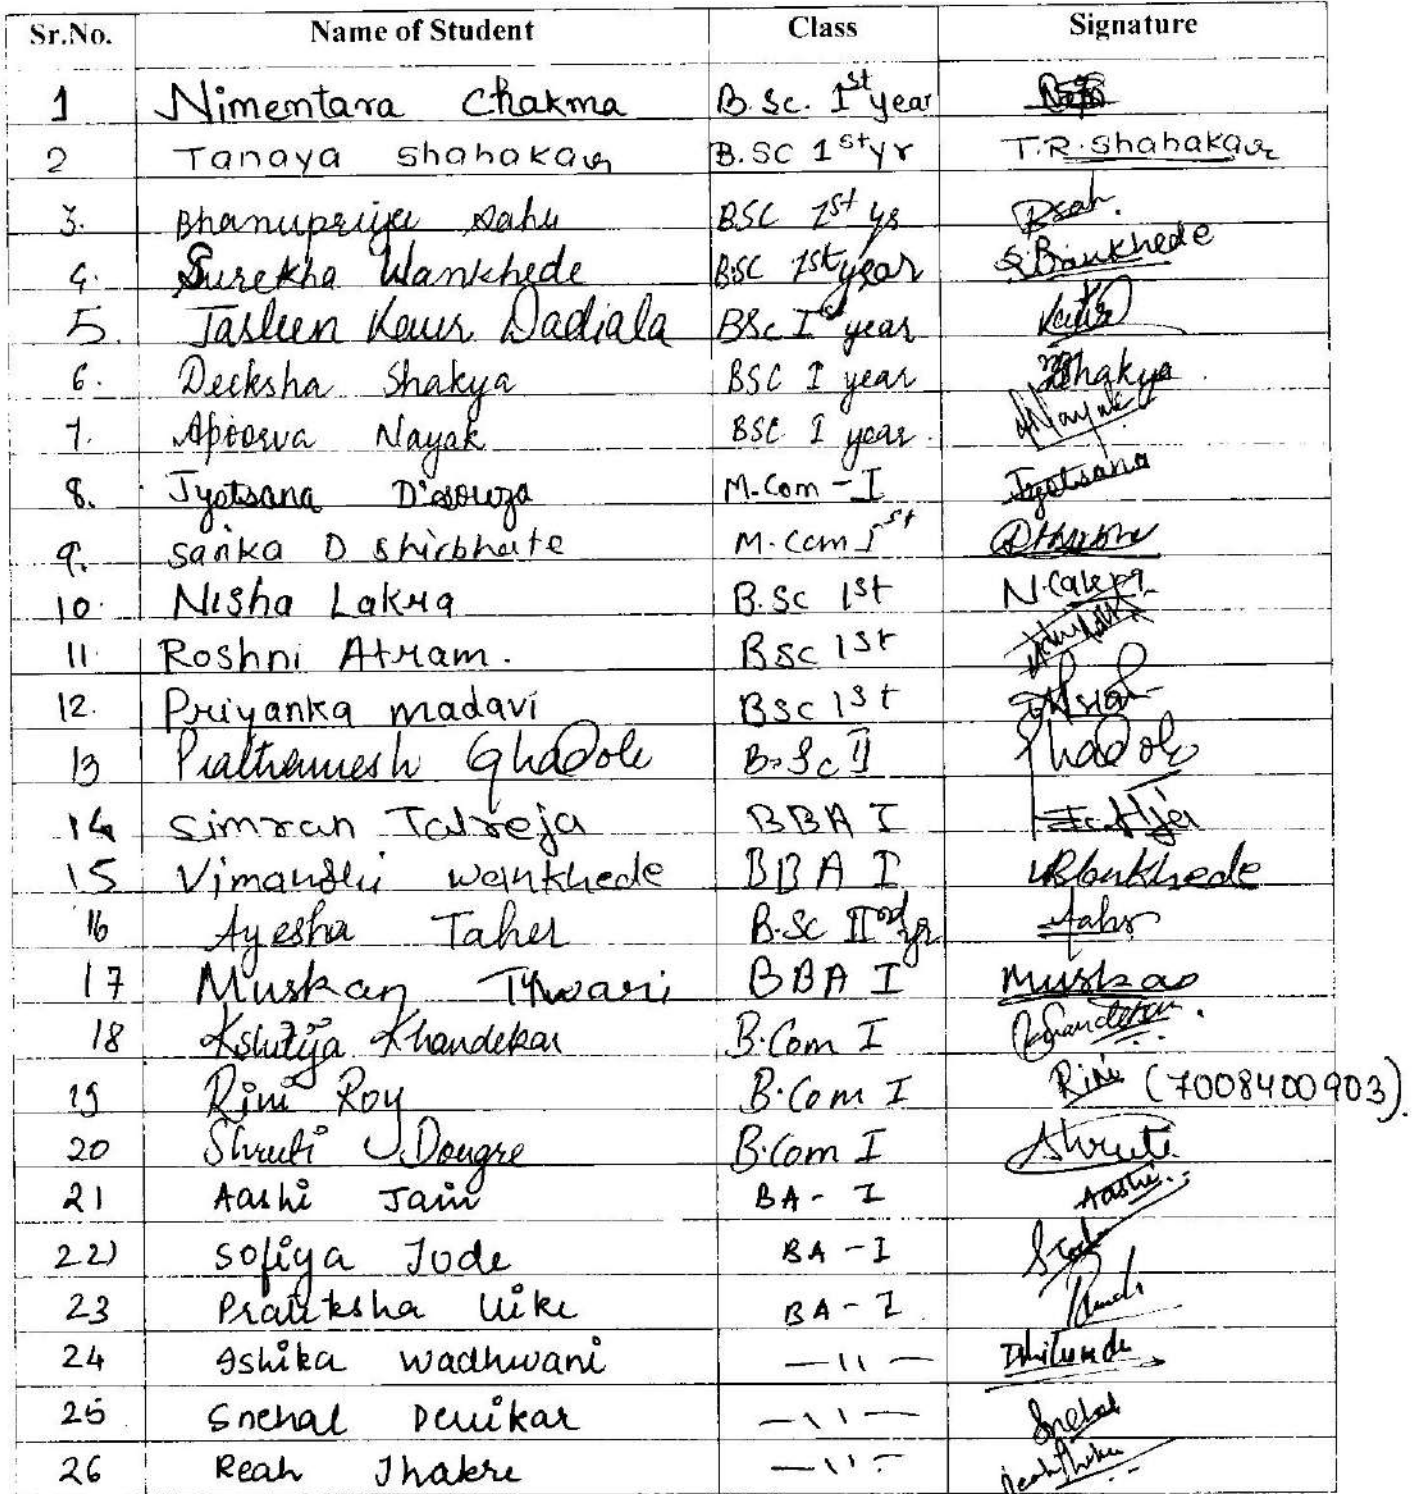 Sr.No. Name of Student Class Signature
1 Nimentara Chakma B.Sc. 1st year
2 Tanaya Shahakar B.SC 1st yr T.R.Shahakar
3. Bhanupriya Sahu BSC 1st yr BSah.
4. Surekha Wankhede B.SC 1st year S.Bankhede
5. Jasleen Kaur Dadiala BSc I year Kaur
6. Deeksha Shakya BSC I year Shakya
7. Apoorva Nayak BSC I year. ANayak
8. Jyotsana D'souza M.Com - I Jyotsana
9. Sanika D Shirbhate M.Com Ist
10. Nisha Lakra B.Sc 1st N.Lakra
11. Roshni Atram. BSc 1st
12. Priyanka madavi BSc 1st
13 Prathamesh Ghadole B.Sc II Ghadole
14 Simran Talreja BBA I
15 Vimanshi Wankhede BBA I Wankhede
16 Ayesha Taher B.Sc IInd yr
17 Muskan Tiwari BBA I Muskan
18 Kshitija Khandekar B.Com I Khandekar.
19 Rini Roy B.Com I Rini (7008400903).
20 Shruti Dongre B.Com I Shruti
21 Aashi Jain BA - I Aashi
22) Sofiya Jode BA - I
23 Pratiksha Uike BA - I
24 Ishika Wadhwani —11—
25 Snehal Denikar —11— Snehal
26 Reah Thakre —11—